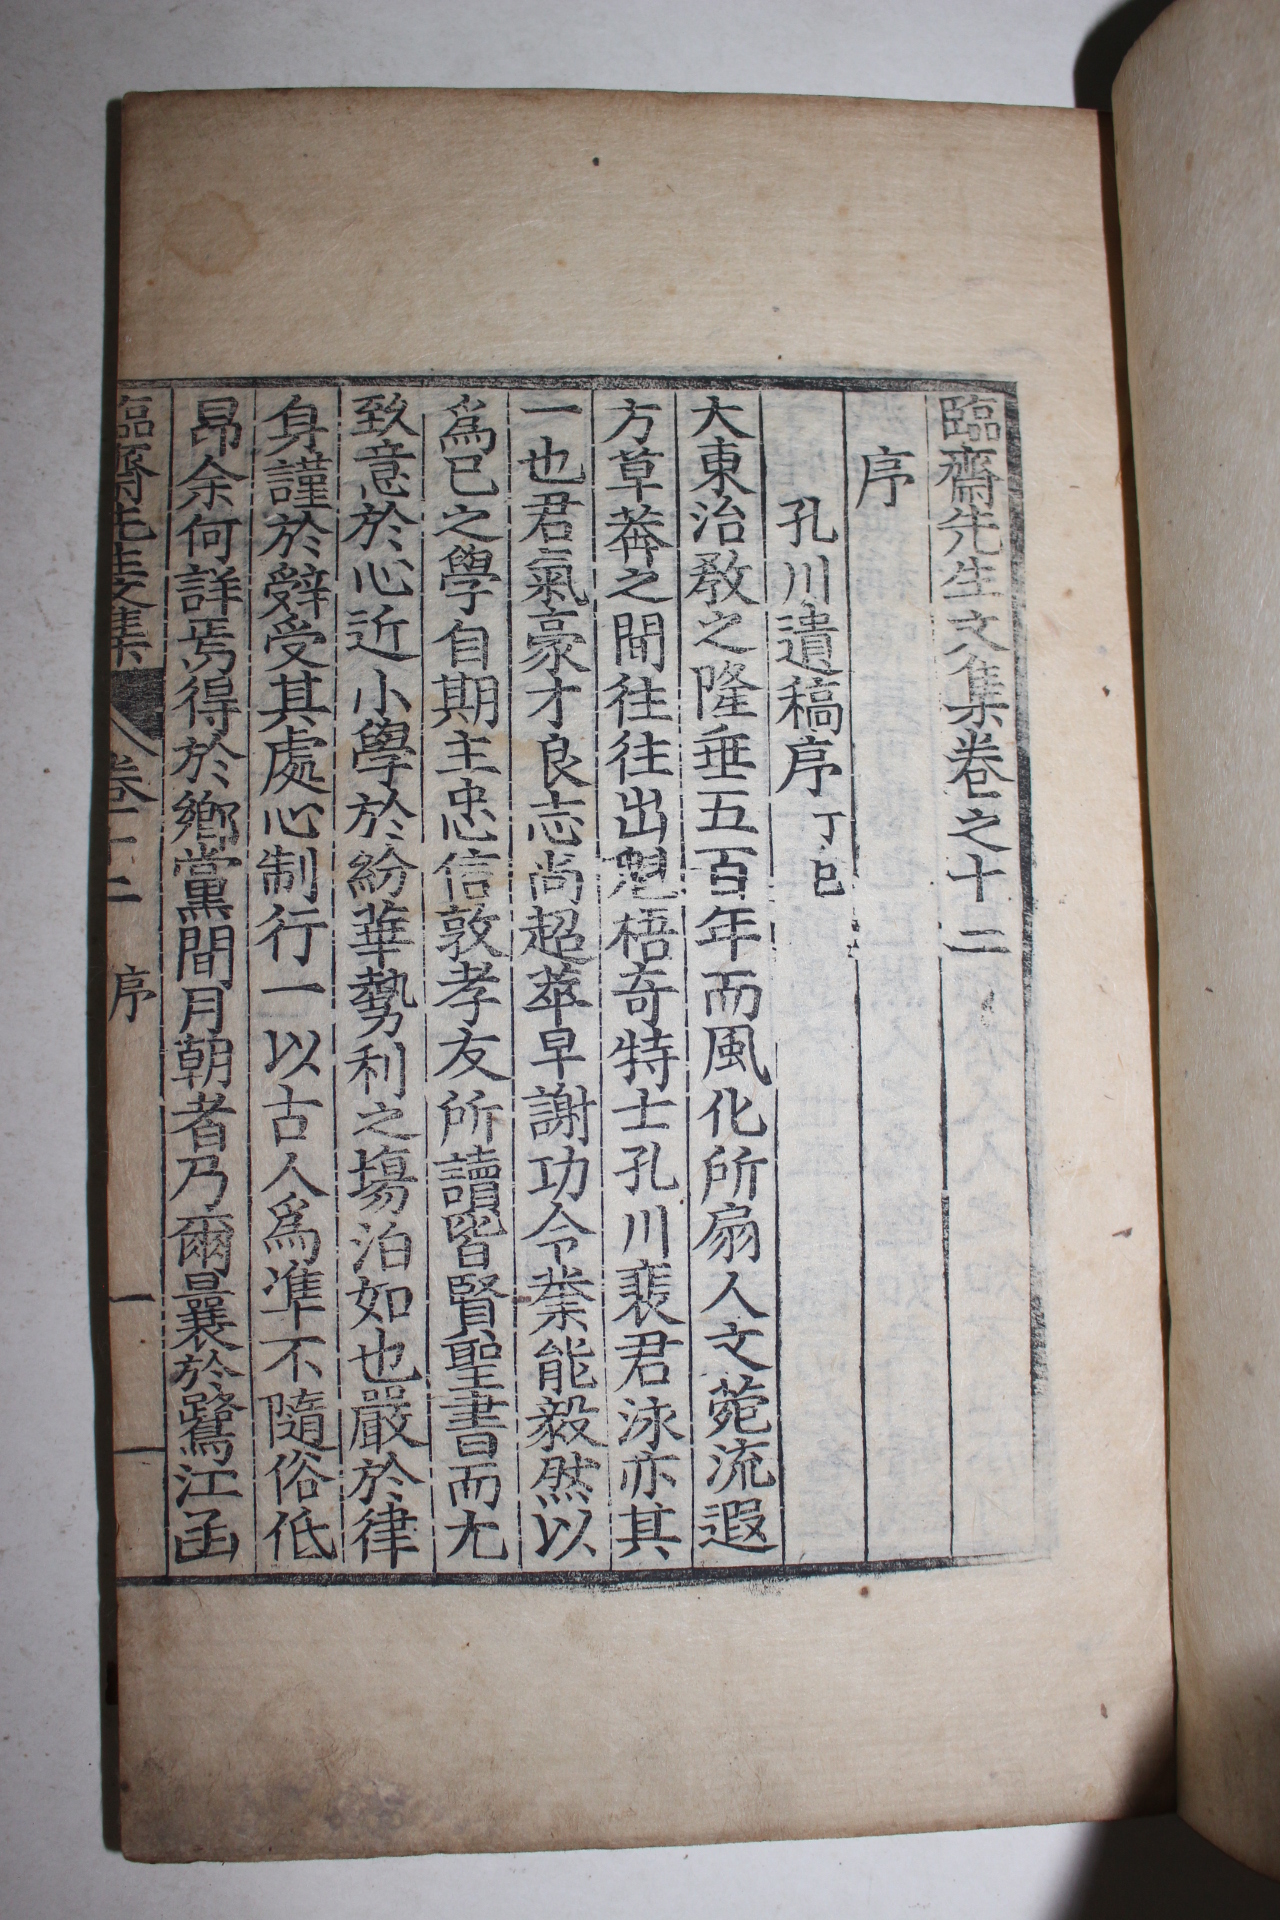 臨齋先生文集卷之十二
序
孔川遺稿序 丁巳
大東治教之隆垂五百年而風化所扇人文菀流遐
方草莽之間往往出魁梧奇特士孔川裴君泳亦其
一也君氣豪才良志尚超萃早謝功令業能毅然以
爲己之學自期主忠信敦孝友所讀皆賢聖書而尤
致意於心近小學於紛華勢利之場泊如也嚴於律
身謹於辭受其處心制行一以古人爲準不隨俗低
昂余何詳焉得於鄕黨間月朝者乃爾曩於鷺江函
臨齋先生文集 卷十二 序 一